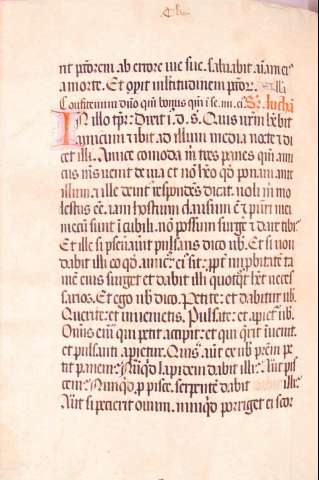 nt pctorem ab errore uie sue. saluabit aiam eius
a morte. Et opit multitudinem pctor.
Confitemini dno qm bonus qm i se. mi. ei Sr. luchā
IN illo tpr. Dixit i. d. s. Quis urm hebit
amicum et ibit ad illum media nocte et di
cet illi. Amice comoda m tres panes qm ami
cus ms uenit de uia et no heo qd ponam ante
illum. et ille deint respondes dicat. noli m mo
lestus ee. iam hostium clausum e et pueri mei
mecu sunt i cubili. no possum surge et dare tibi.
Et ille si pseuauit pulsans dico ub. Et si non
dabit illi eo qd amic ei sit. ppt inpbitate ta
men eius surget et dabit illi quotqt het neces
sarios. Et ego ub dico. Petite. et dabitur ub.
Querite. et inuenietis. Pulsate. et apiet ub.
Omis eni qui petit accipit. et qui qrit inuenit.
et pulsanti apietur. Quis aut ex ub prem pe
tit panem. Nuqd lapidem dabit illi. Aut pis
cem. Nunqd p pisce. serpente dabit illi.
Aut si petierit ouum. nunqd porriget ei scor